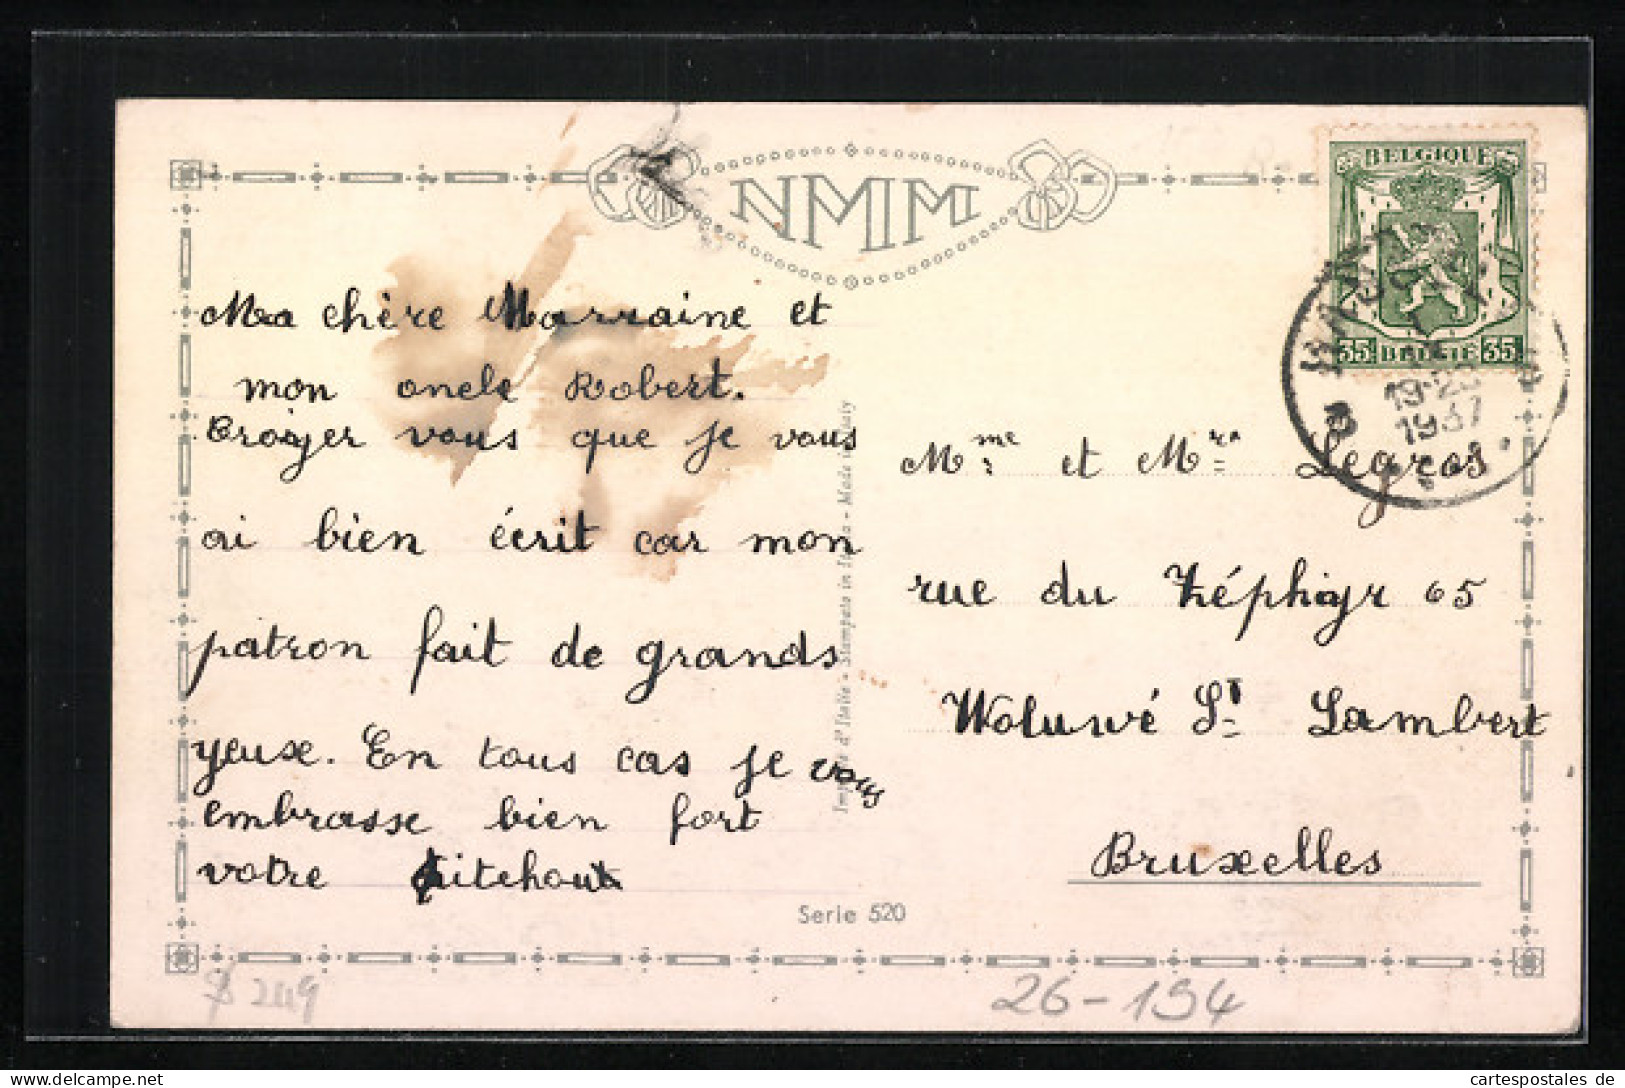 NMM
BELGIQUE
35 BELGIË 35
19-20
1937
Ma chère Marraine et
mon oncle Robert.
Croiyer vous que je vous
ai bien écrit car mon
patron fait de grands
yeuse. En tous cas je vous
embrasse bien fort
votre
Mme et Mrs Legros
rue du Zéphiyr 65
Woluwé St Lambert
Bruxelles
Imprimé d'Italie - Stampato in Italia - Made in Italy
Serie 520
249
26-194
cartespostales de